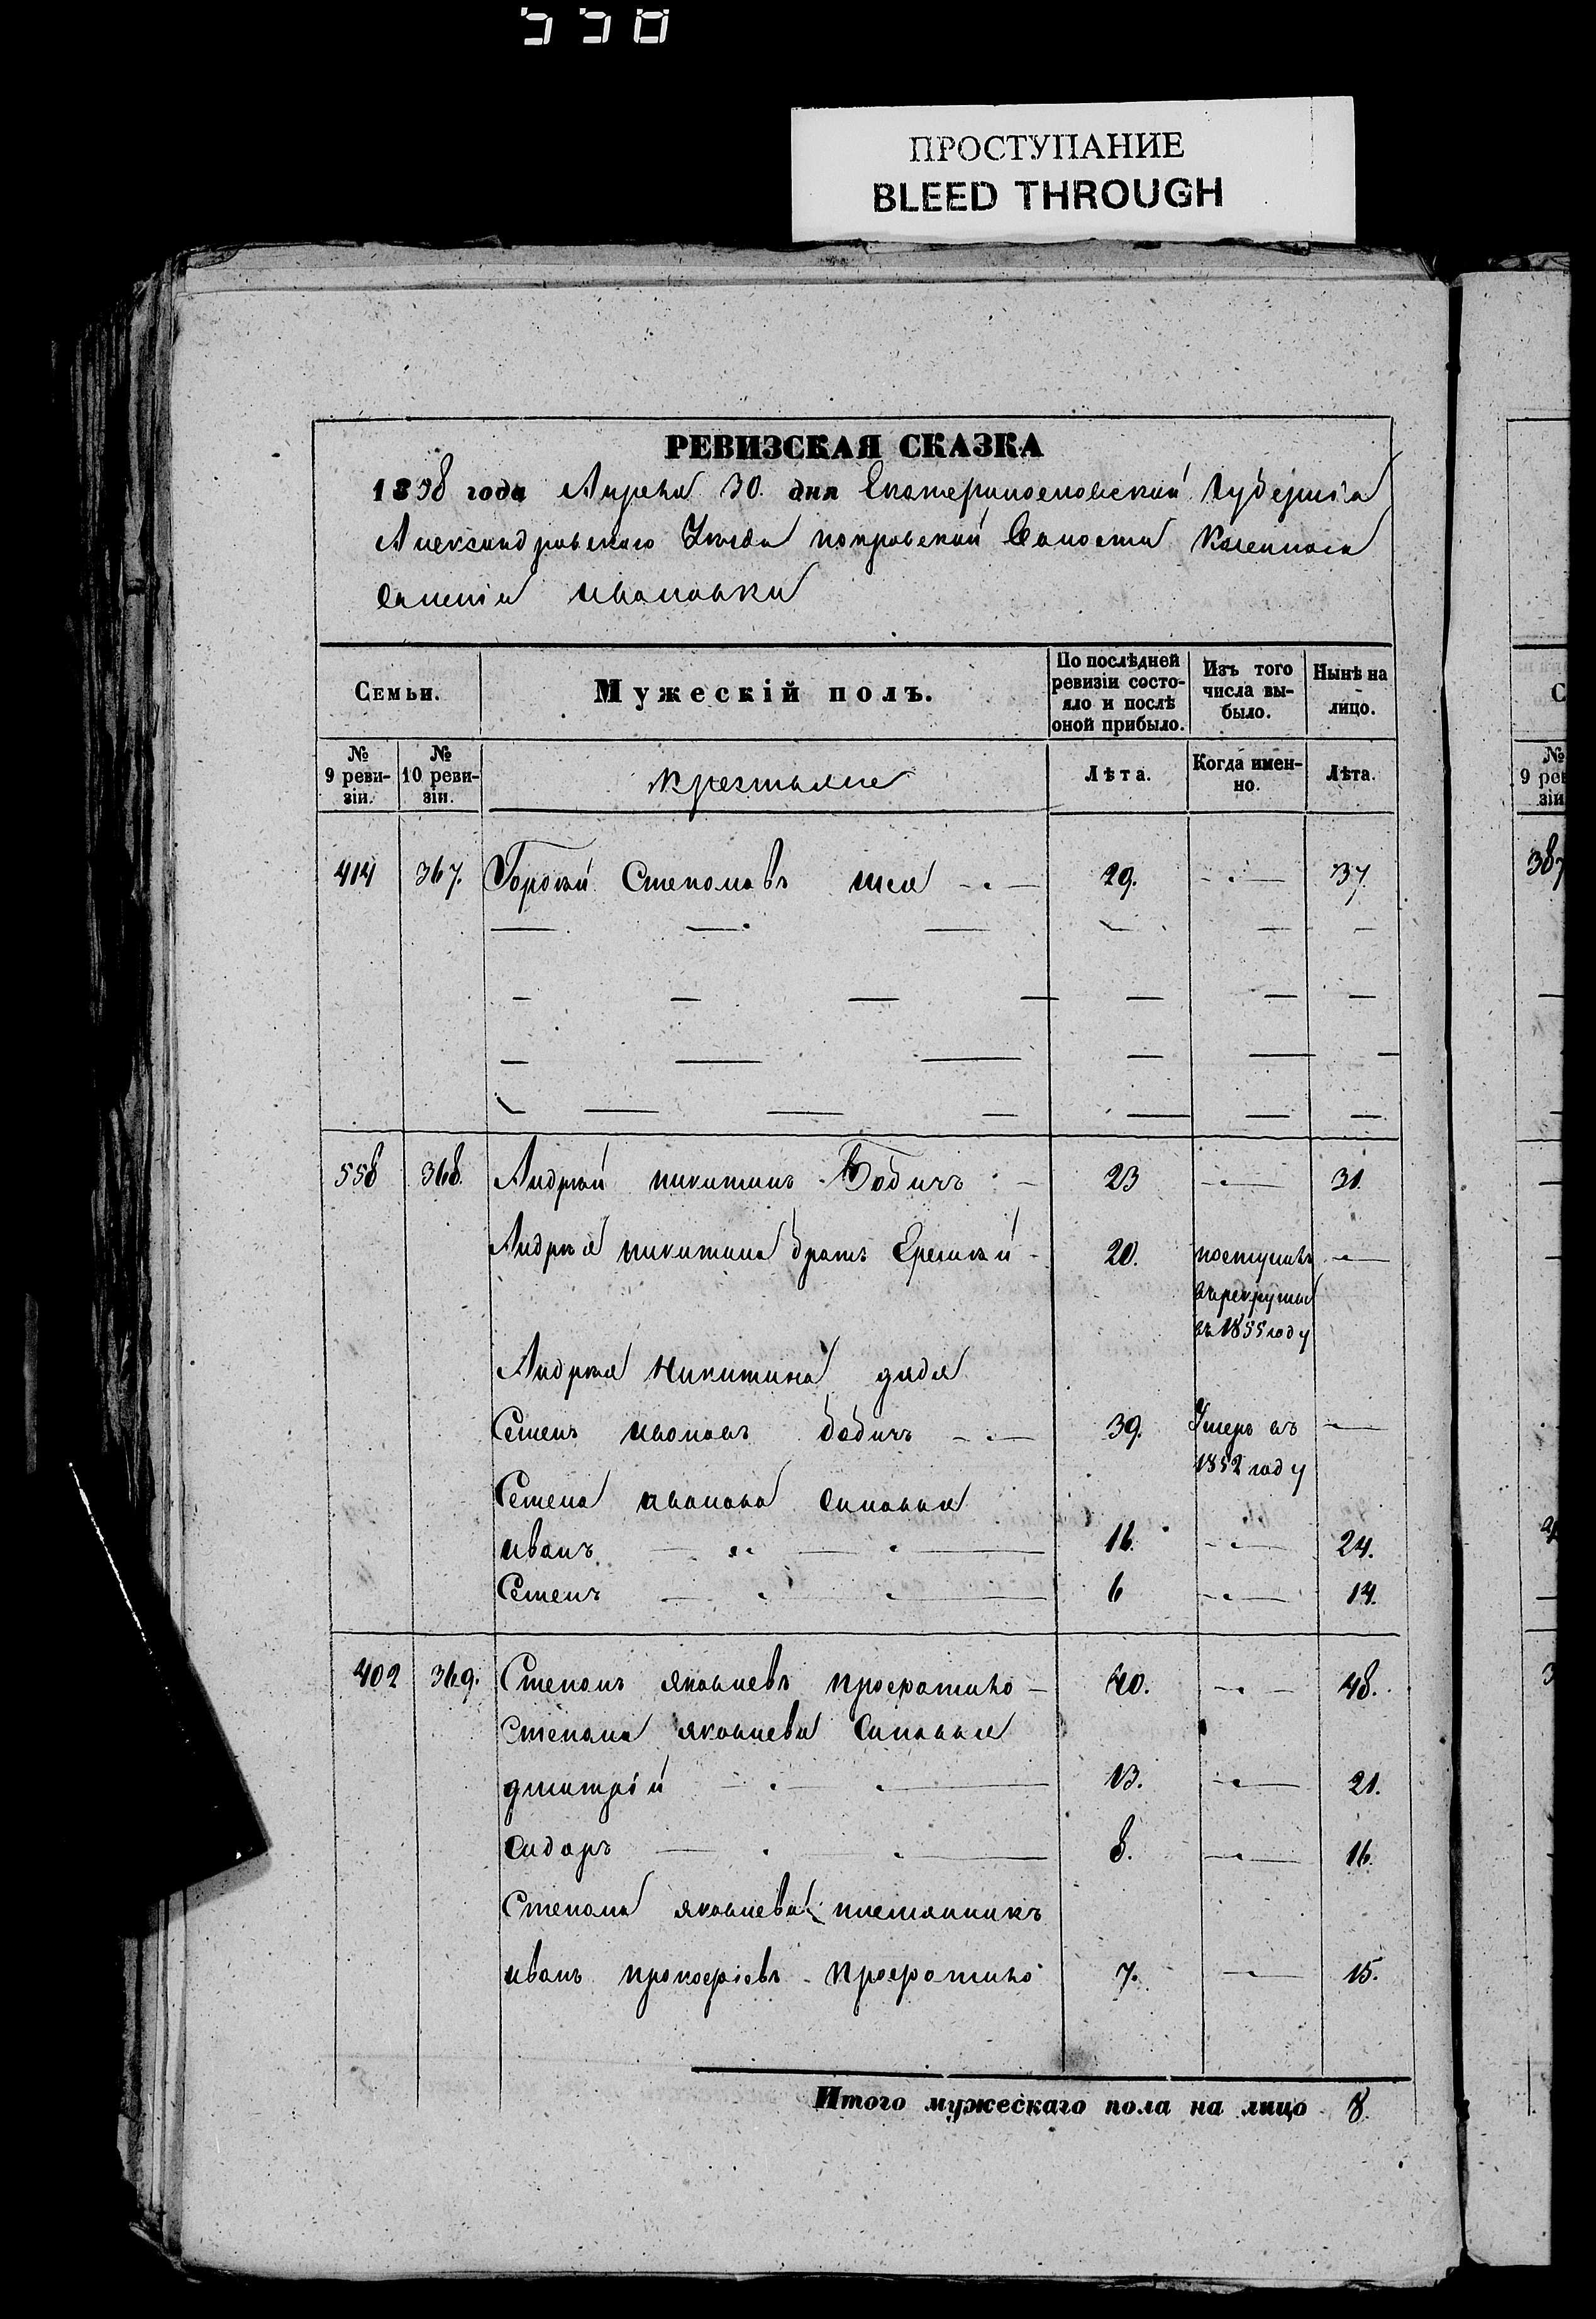 530
ПРОСТУПАНИЕ
BLEED THROUGH
РЕВИЗСКАЯ СКАЗКА
1858 года Апреля 30. дня Екатеринославской Губерніи
Александровскаго Уезда покровской Волости Казеннаго
Селенія ивановки
Семьи.
Мужескій полъ.
По послѣдней ревизіи состояло и послѣ оной прибыло.
Изъ того числа выбыло.
Нынѣ на лицо.
№ 9 ревизіи.
№ 10 ревизіи.
Крестьяне
Лѣта.
Когда именно.
Лѣта.
414 367. Степановъ 29. 37.
558 368. Андрей никитинъ Бабичъ 23 31.
Андрея никитина братъ Еремей 20. поступилъ
в рекруты
въ 1855 году
Андрея Никитина дядя
Семенъ ивановъ бабичъ 39. Умеръ въ
1852 году
Семена иванова Сыновья
иванъ 16. 24.
Семенъ 6 14.
402 369. Степанъ яковлевъ 40. 48.
Степана яковлева Сыновья
дмитрій 13. 21.
Сидоръ 8. 16.
Степана яковлева племянникъ
иванъ прокофіевъ 7. 15.
Итого мужескаго пола на лицо 8
№
9 рев
зіи
387